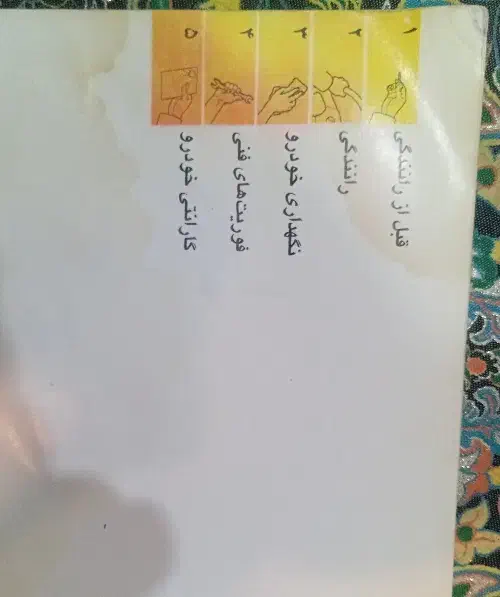 ۱ قبل از رانندگی
۲ رانندگی
۳ نگهداری خودرو
۴ فوریت‌های فنی
۵ گارانتی خودرو